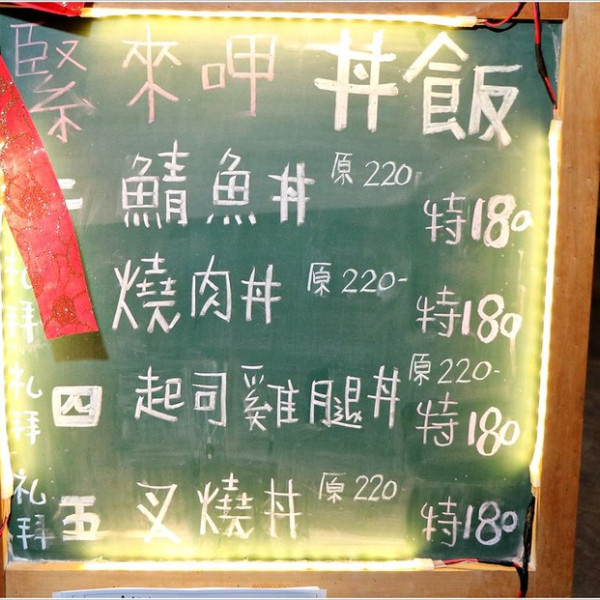 緊來呷丼飯
二 鯖魚丼 原220 特180
礼拜 燒肉丼 原220- 特180
礼拜四 起司雞腿丼 原220- 特180
礼拜五 叉燒丼 原220 特180